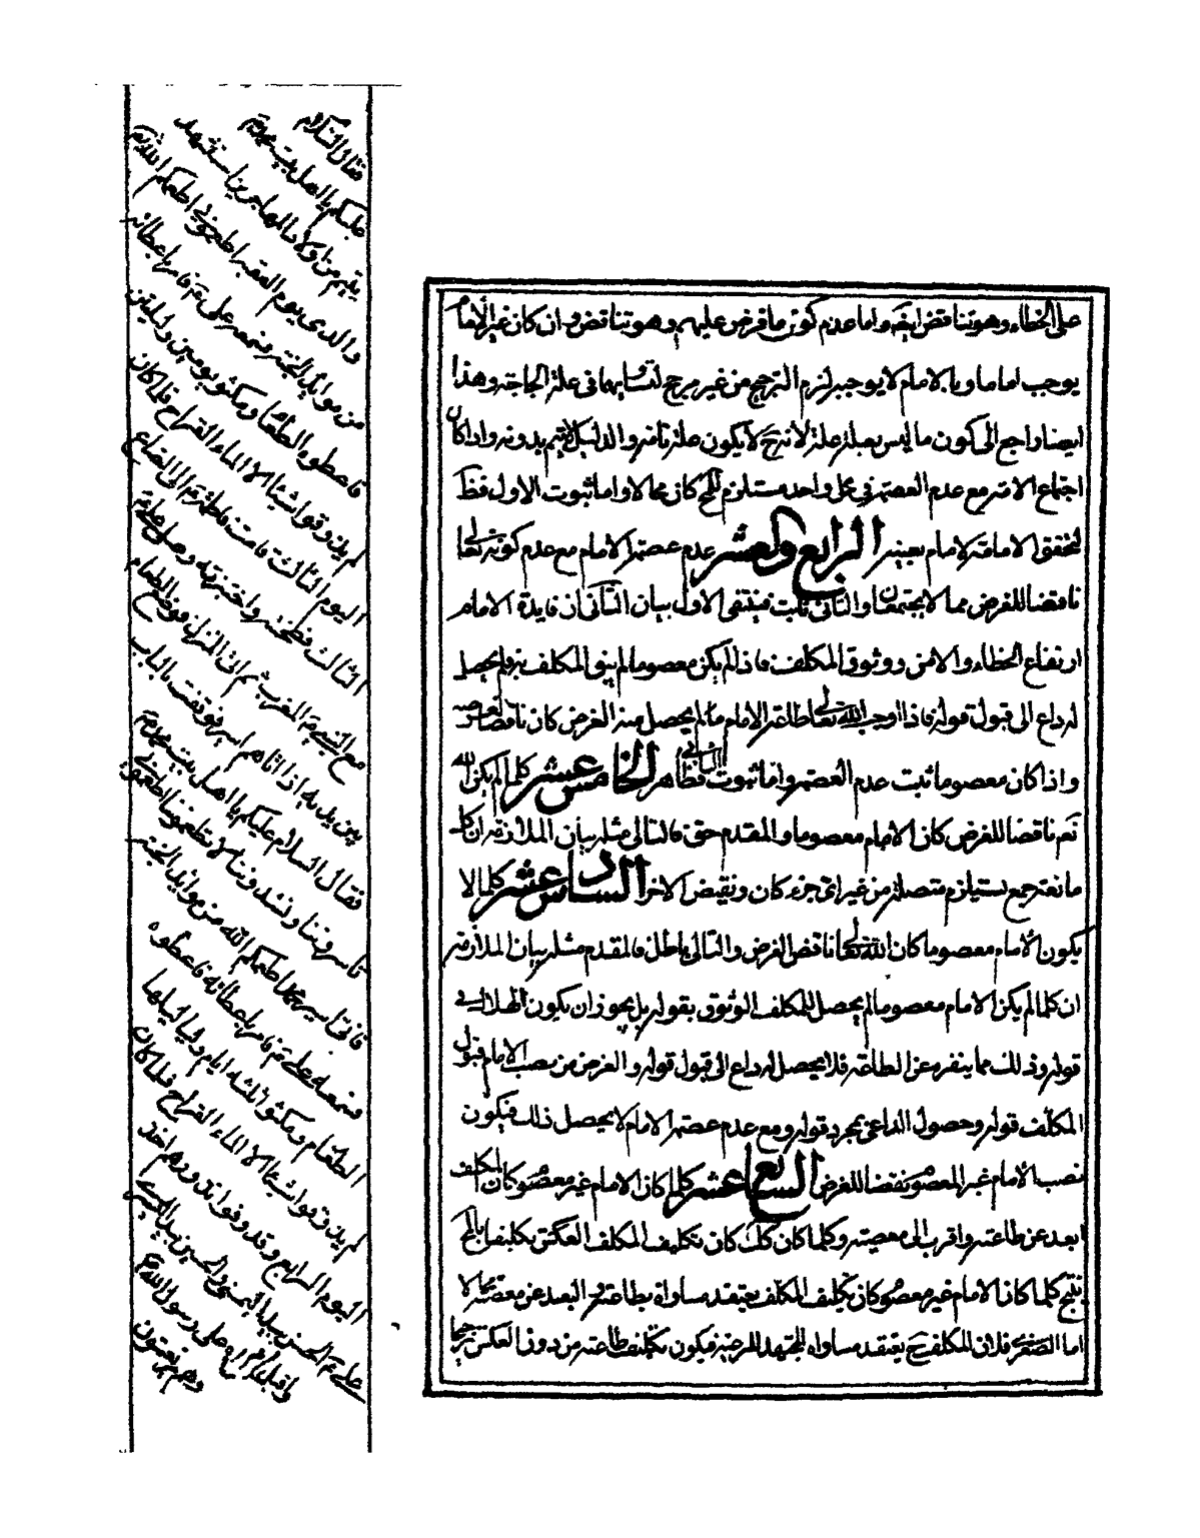 على الخطاء وهو تناقض ايضا واما عدم كون ما فرض عليهم وهو تناقض وان كان غير الامام
يوجب اماما وبالامام لا يوجب لزم الترجيح من غير مرجح لتساويهما في علة الحاجة وهذا
ايضا راجع الى كون ما ليس بعلة علة لانه ح لا يكون علة تامة والدليل لا يتم بدونه واذا كان
اجتماع الامة مع عدم العصمة في محل واحد مستلزم للمح كان محالا واما ثبوت الاول فظ
لتحقق الامامة للامام بعينه الرابع والعشر عدم عصمة الامام مع عدم كونه تعالى
ناقضا للغرض مما لا يجتمعان والثاني ثابت فينتفي الاول بيان الثاني ان فايدة الامام
ارتفاع الخطاء والامن ووثوق المكلف فاذا لم يكن معصوما لم يثق المكلف به فلم يحصل
له داع الى قبول قوله فاذا اوجب الله تعالى طاعة الامام ما لم يحصل منه الغرض كان ناقضا لغرضه
واذا كان معصوما ثبت عدم العصمة واما ثبوت الثاني فظاهر الخامس عشر كلما لم يكن الله
تعم ناقضا للغرض كان الامام معصوما والمقدم حق فالتالى مثله بيان الملازمة ان كل
مانعة جمع يستلزم متصلة من غير اى جزء كان ونقيض الاخر السادس عشر كلما لا
يكون الامام معصوما كان الله تعالى ناقض الغرض والتالى باطل فالمقدم مثله بيان الملازمة
ان كلما لم يكن الامام معصوما لم يحصل للمكلف الوثوق بقوله بل يجوز ان يكون الهلاك في
قوله وذلك مما ينفره عن الطاعة فلا يحصل له داع الى قبول قوله والغرض من نصب الامام قبول
المكلف قوله وحصول الداعى بمجرد قوله ومع عدم عصمة الامام لا يحصل ذلك فيكون
نصب الامام غير المعصوم نقضا للغرض السابع عشر كلما كان الامام غير معصوم كان المكلف
ابعد عن طاعته واقرب الى معصيته وكلما كان كك كان تكليف المكلف العكس تكليفا بالمح
ينتج كلما كان الامام غير معصوم كان تكليف المكلف يعتقد مساواة بطاعته والبعد عن معصيته محالا
اما الصغرى فلان المكلف ح يعتقد مساواه للمجتهد للرجيه فيكون تكليفه طاعته من دون العكس ترجيحا
فقال السلام
عليكم يا اهل بيت محمد ص
يتيم من اولاد المهاجرين استشهد
والدى يوم العقبه اطعمونى اطعمكم الله
من موايد الجنة فسمعه على ع فامر باعطائه
فاعطوه الطعام ومكثوا يومين وليلتين
لم يذوقوا شيئا الا الماء القراح فلما كان
اليوم الثالث قامت فاطمة ع الى الصاع
الثالث فطحنته واختبزته وصلى على ع
مع النبي ص المغرب ثم اتى المنزل فوضع الطعام
بين يديه اذ اتاهم اسير فوقف بالباب
فقال السلام عليكم يا اهل بيت محمد
تاسروننا وتشدوننا ولا تطعموننا اطعمونى
فانى اسير محمد اطعمكم الله من موايد الجنة
فسمعه على ع فامر باعطائه فاعطوه
الطعام ومكثوا ثلثة ايام ولياليها
لم يذوقوا شيئا الا الماء القراح فلما كان
اليوم الرابع وقد وفوا نذورهم اخذ
على ع الحسن بيده اليمنى والحسين بيده اليسرى
واقبل بهم على رسول الله ص
وهم يرتعشون